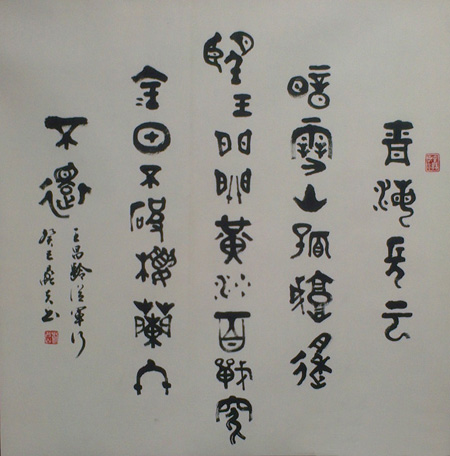 青海長云
暗雪山孤城遥
望玉門關黄沙百戰穿
金甲不破樓蘭終
不還
王昌齡從軍行
癸巳书